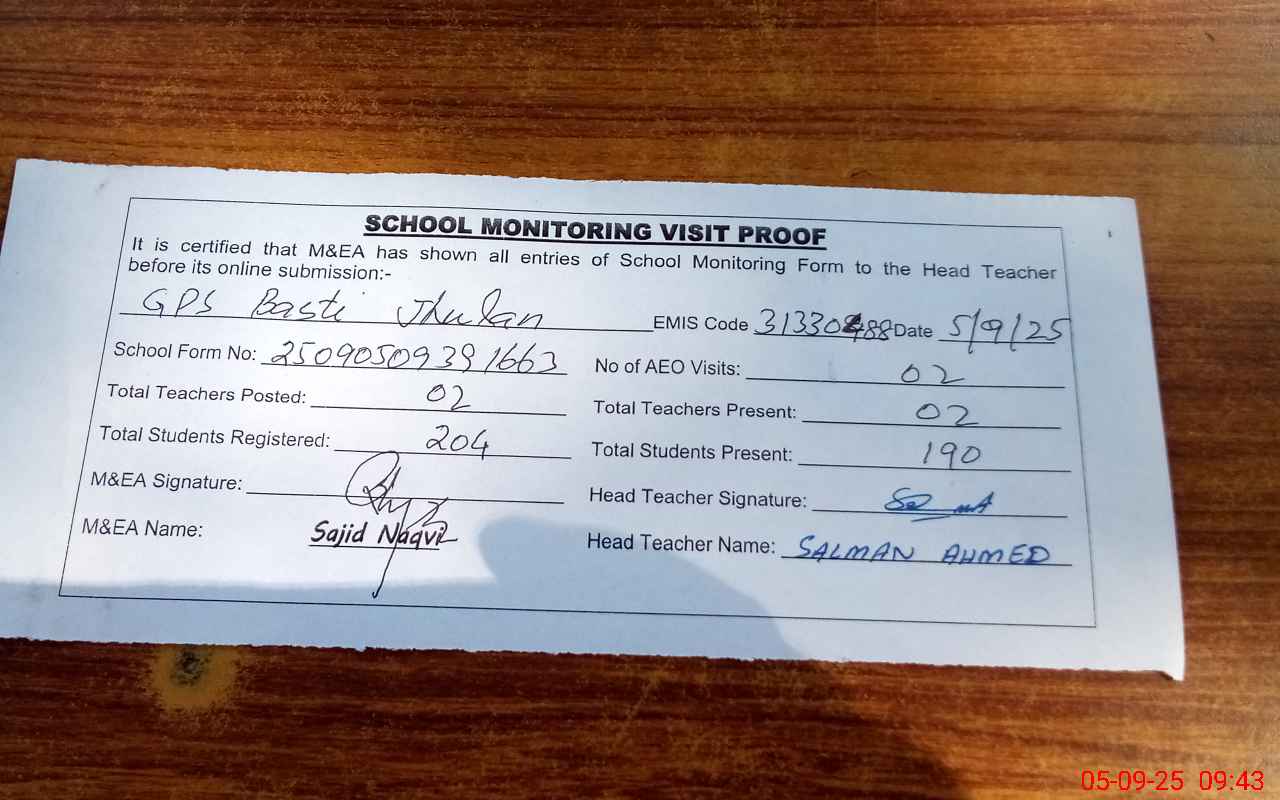 SCHOOL MONITORING VISIT PROOF
It is certified that M&EA has shown all entries of School Monitoring Form to the Head Teacher
before its online submission:-
GPS Basti Jhulan EMIS Code Date 5/9/25
School Form No: 25090509391663 No of AEO Visits: 02
Total Teachers Posted: 02 Total Teachers Present: 02
Total Students Registered: 204 Total Students Present: 190
M&EA Signature: Head Teacher Signature:
M&EA Name: Sajid Naqvi Head Teacher Name: SALMAN AHMED
05-09-25 09:43